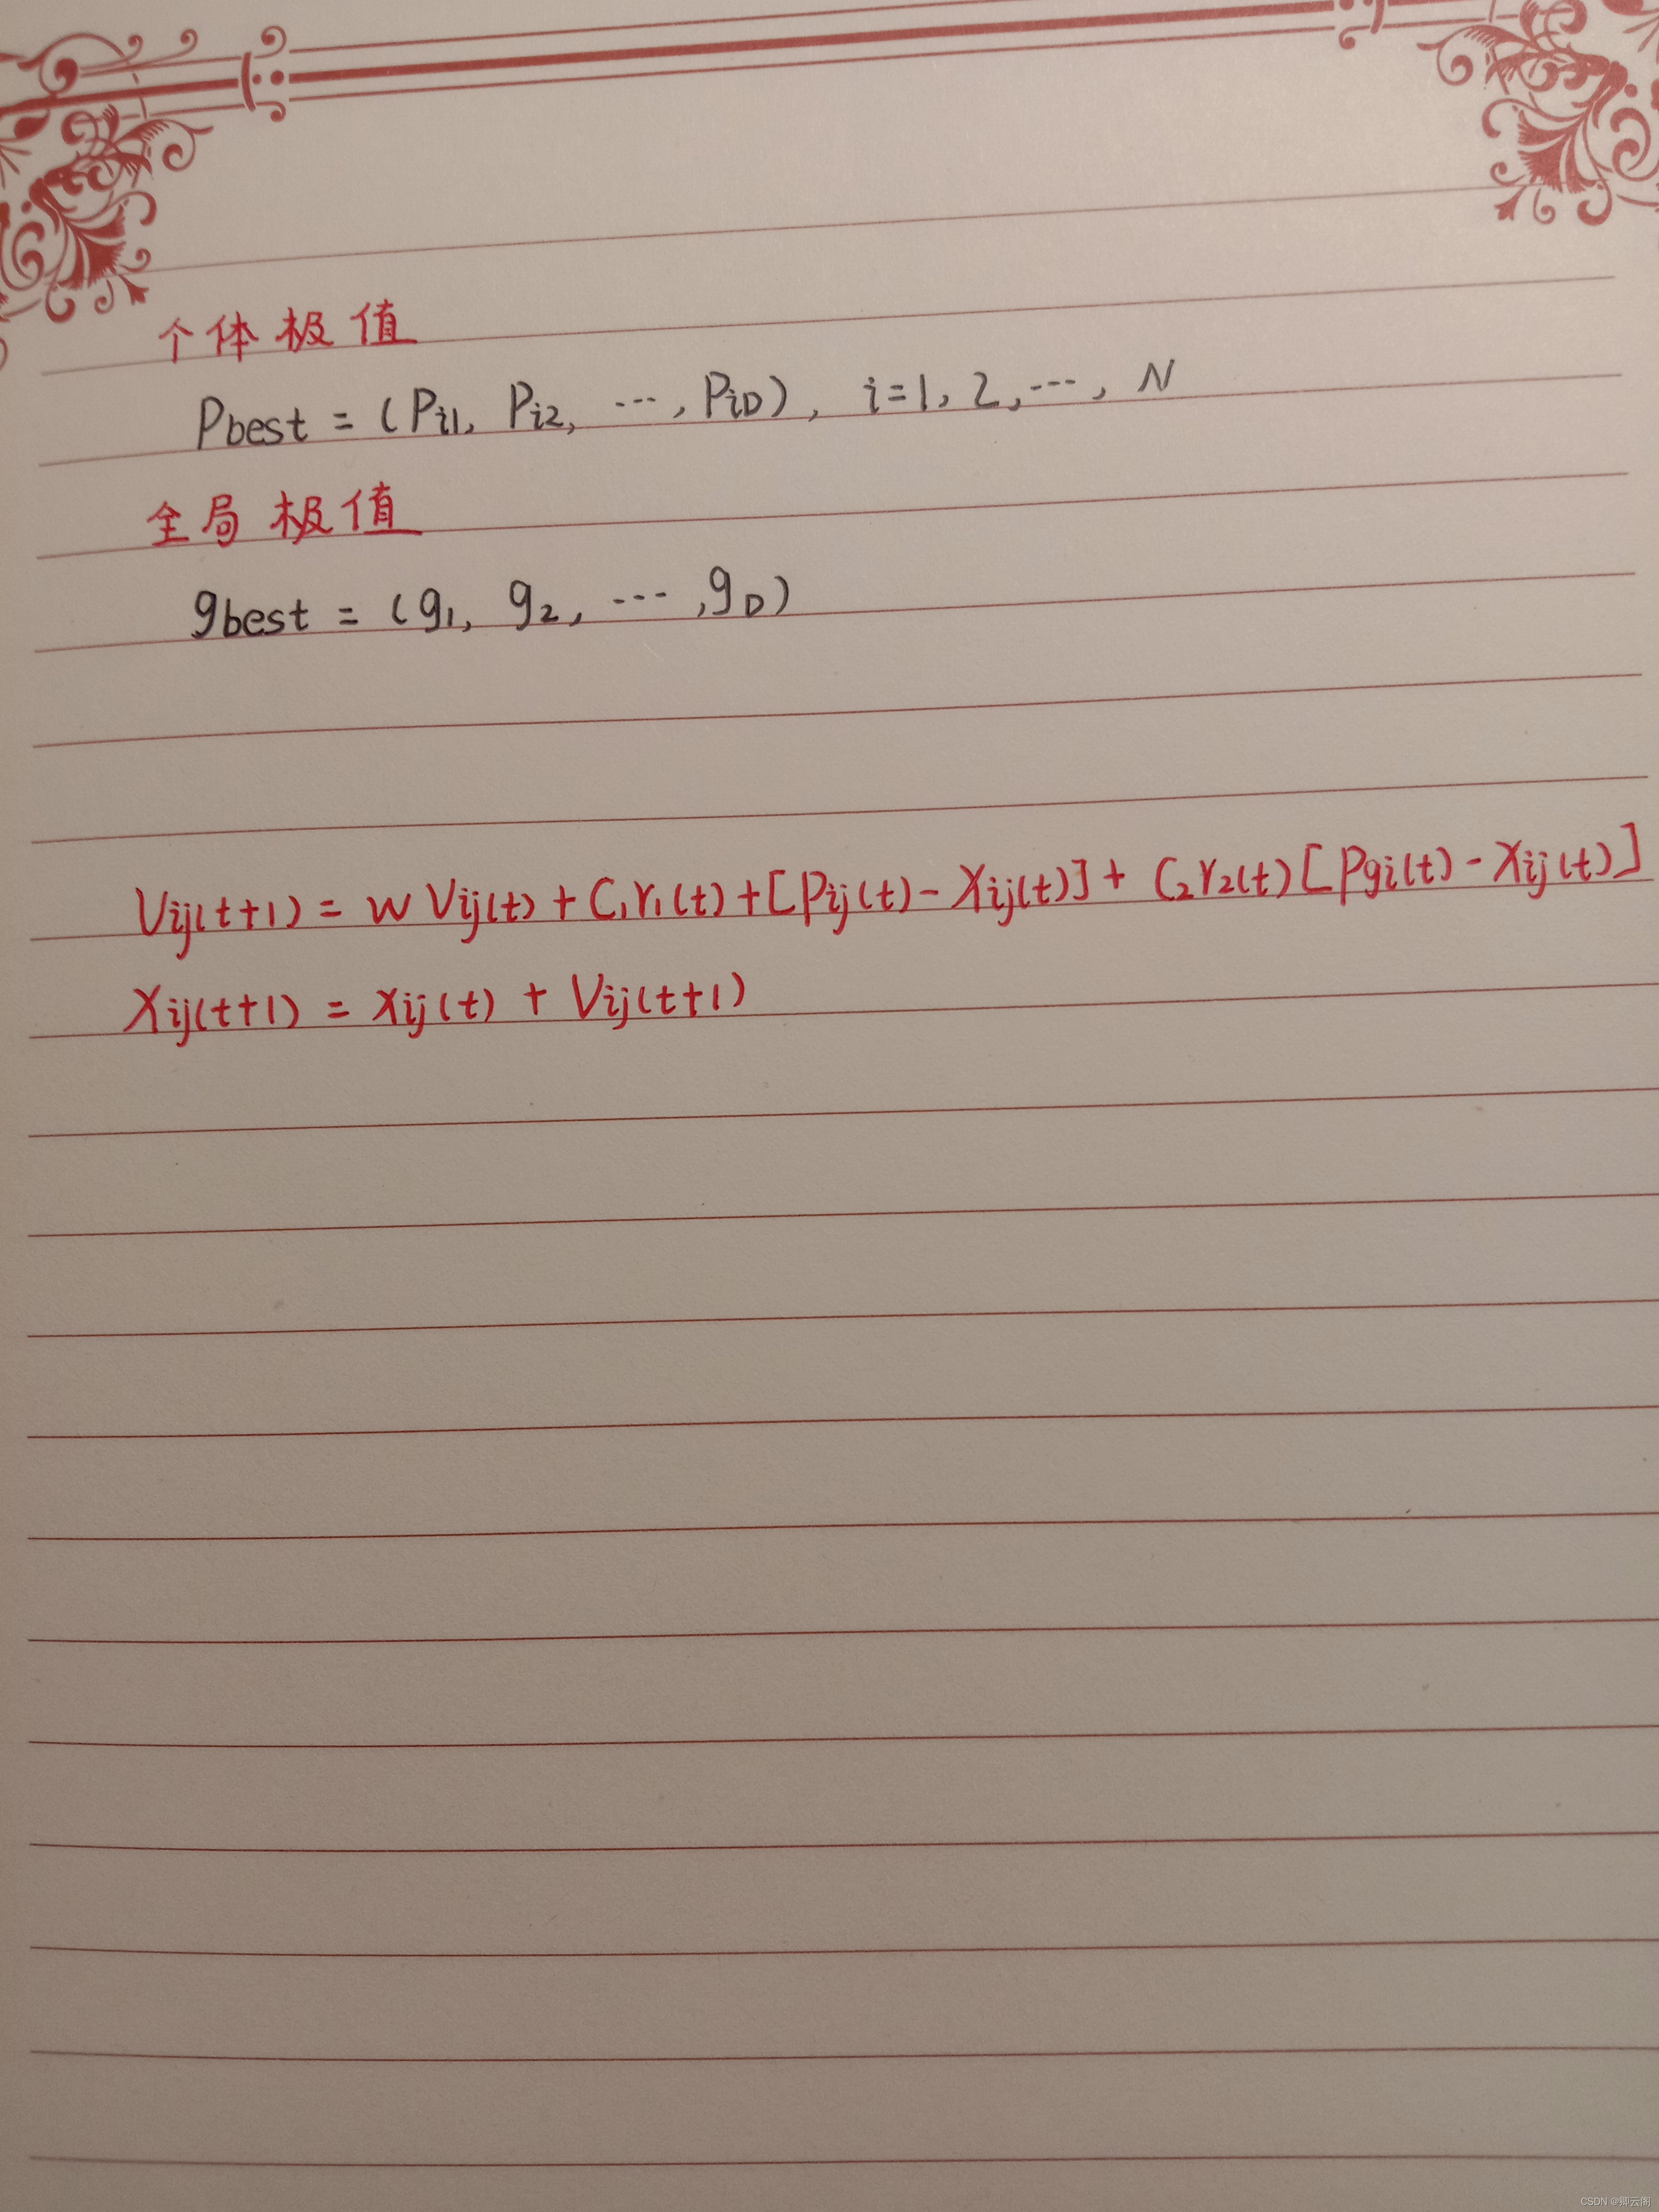 个体极值
Pbest = (Pi1, Pi2, ···, PiD), i=1, 2, ···, N
全局极值
gbest = (g1, g2, ···, gD)
Vij(t+1) = w Vij(t) + C1r1(t) + [Pij(t) - Xij(t)] + C2r2(t) [Pgi(t) - Xij(t)]
Xij(t+1) = Xij(t) + Vij(t+1)
CSDN @卿云阁